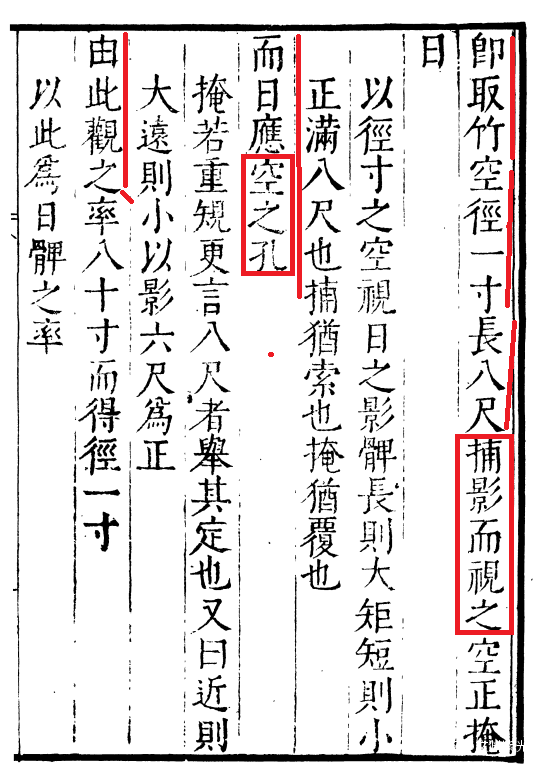 卽取竹空徑一寸長八尺捕影而視之空正掩
日
以徑寸之空視日之影髀長則大矩短則小
正滿八尺也捕猶索也掩猶覆也
而日應空之孔
掩若重規更言八尺者舉其定也又曰近則
大遠則小以影六尺爲正
由此觀之率八十寸而得徑一寸
以此爲日髀之率